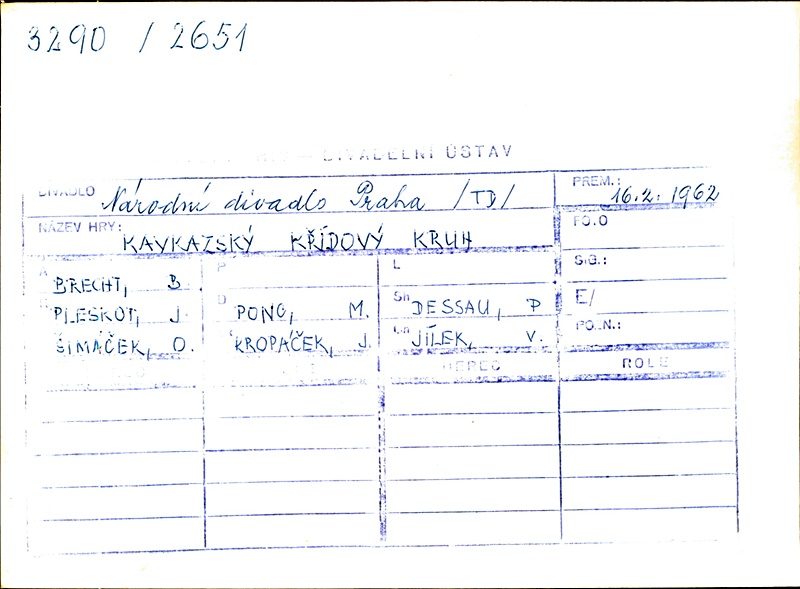 3290 / 2651
DIVADELNÍ ÚSTAV
DIVADLO Národní divadlo Praha /TD/ PREM.: 16.2. 1962
NÁZEV HRY: KAVKAZSKÝ KŘÍDOVÝ KRUH FO.O
A BRECHT, B. P L SIG.:
PLESKOT, J. D PONC, M. Sn DESSAU, P E/
ŠIMÁČEK, O. KROPÁČEK, J. JÍLEK, V. PO.N.:
HEREC ROLE